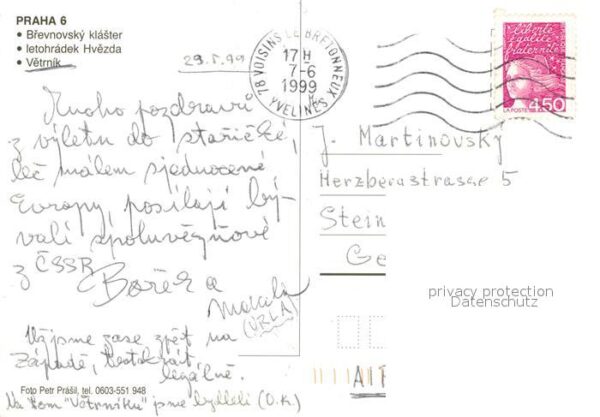 PRAHA 6
• Břevnovský klášter
• letohrádek Hvězda
• Větrník
29.5.99
Mnoho pozdravů
z výletu do stařičké,
leč málem sjednocené
Evropy, posílají bý-
valí spoluvězňové
z ČSSR Bořek a
(URLA)
Už jsme zase zpět na
Západě, tentokrát
legálně.
Foto Petr Prášil, tel. 0603-551 948
Na tom "Větrníku" jsme bydleli (O.K.)
78 VOISINS LE BRETONNEUX
17 H
7-6
1999
YVELINES
liberté
égalité
fraternité
LA POSTE
4,50
J. Martinovský
Herzbergstrasse 5
Stein
Ge
privacy protection
Datenschutz